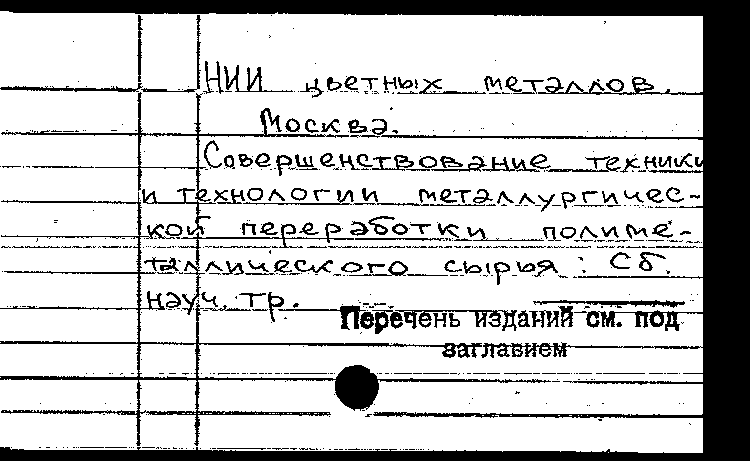 НИИ цветных металлов.
Москва.
Совершенствование техники
и технологии металлургичес-
кой переработки полиме-
таллического сырья: Сб.
науч. тр.
Перечень изданий см. под
заглавием